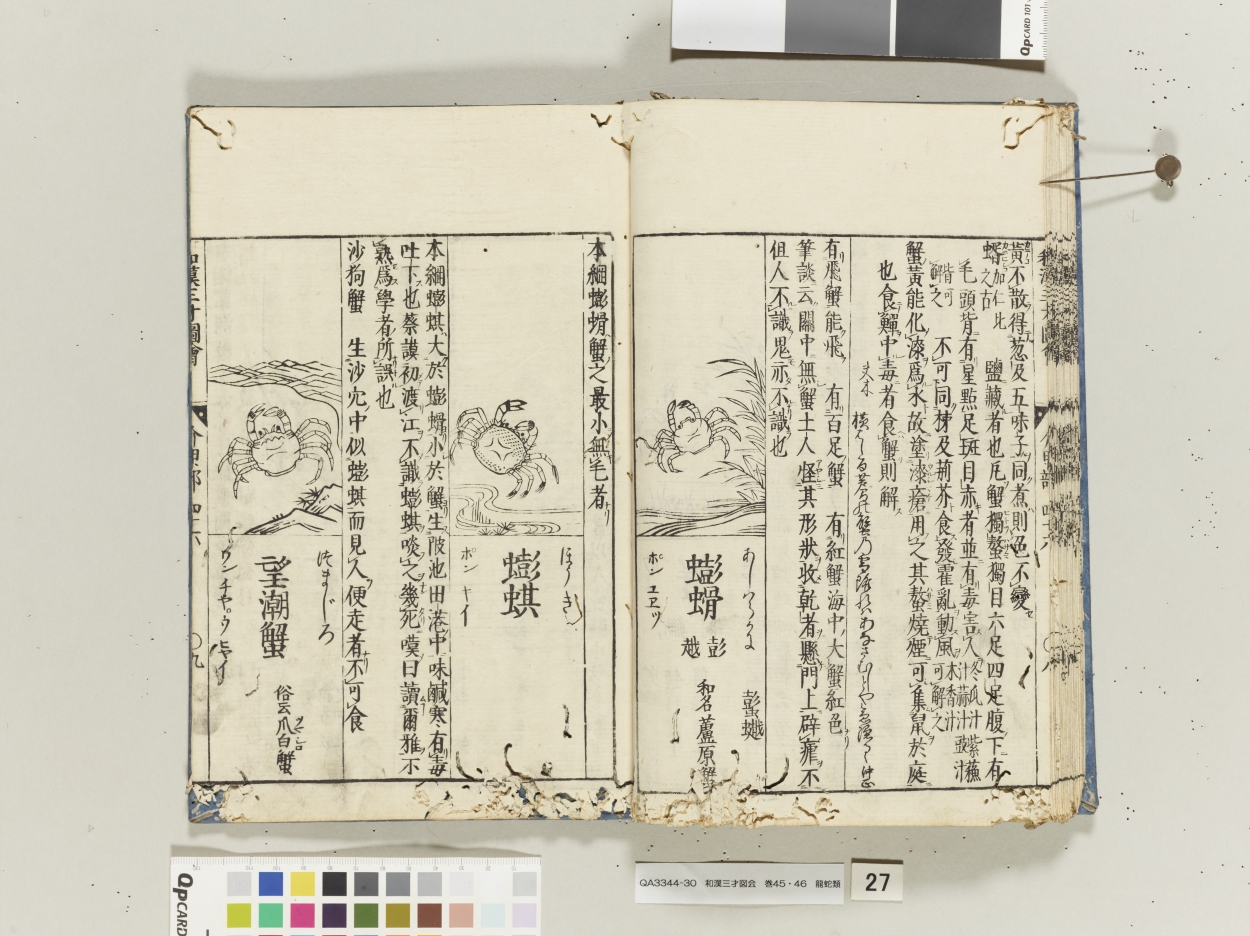 黃不散得葱及五味子同煮則色不變
蝑加仁比之古
鹽藏者也凡蟹獨螯獨目六足四足腹下有
毛頭背有星點足斑目赤者並有毒害人
冬瓜汁紫蘓汁蒜汁豉汁木香汁可解之
皆可解之
不可同柹及荊芥食發霍亂動風
蟹黃能化漆爲水故塗漆瘡用之其螯燒煙可集鼠於庭
也食鱓中毒者食蟹則解
夫木
有飛蟹能飛 有百足蟹 有紅蟹海中大蟹紅色
筆談云關中無蟹土人怪其形狀收乾者懸門上辟瘧不
但人不識鬼亦不識也
蟛螖
ポン エツ
彭越
和名蘆原蟹
本綱蟛螖蟹之最小無毛者
蟛蜞
ポン キイ
本綱蟛蜞大於蟛螖小於蟹生陂池田港中味鹹寒有毒
吐下也蔡謨初渡江不識蟛蜞啖之幾死嘆曰讀爾雅不
熟爲學者所誤也
沙狗蟹 生沙穴中似蟛蜞而見人便走者不可食
つまじろ
望潮蟹
ワン チヤ゜ウ ヒヤイ
俗云爪白蟹
和漢三才圖會
介甲部 四十六
〇九
QpCARD 101
QpCARD
QA3344-30 和漢三才図会 巻45・46 龍蛇類
27